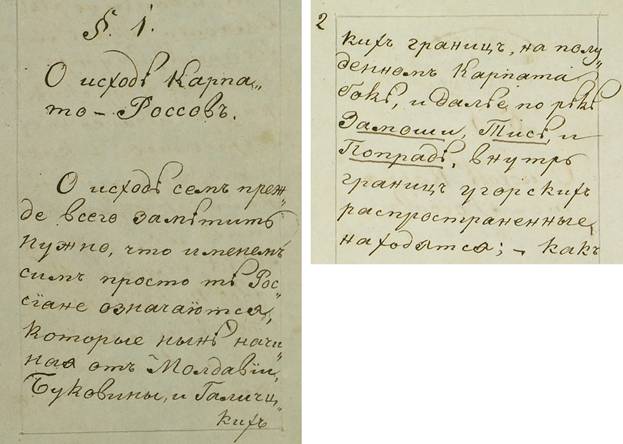 §. 1.
О исходѣ Карпа„
то – Россовъ.
О исходѣ семъ преж„
де всего замѣтить
нужно, что именемъ
симъ просто тѣ Рос„
сїане означаются,
которые нынѣ начи„
ная отъ Молдавіи,
Буковины, и Галичц„
кихъ
2
кихъ границъ, на полу„
денномъ Карпата
бокѣ, и далѣе по рѣкѣ
Замоши, Тисѣ и
Попрадѣ, внутрь
границъ угорскихъ
распространенные
находятся; – какъ